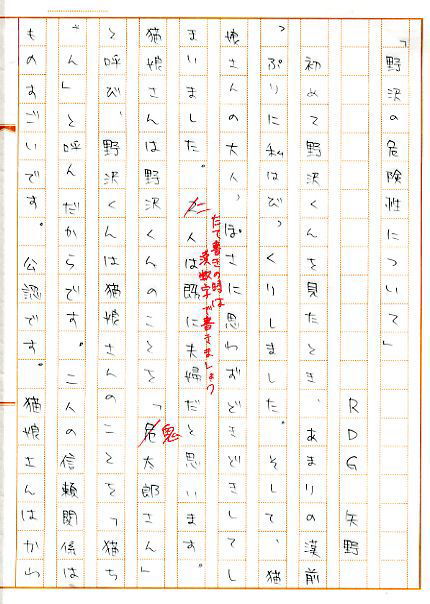 「野沢の危険性について」
RDG 矢野
初めて野沢くんを見たとき、あまりの漢前
っぷりに私はびっくりしました。そして、猫
娘さんの大人っぽさに思わずどきどきしてし
たて書きの時は
漢数字で書きましょう
まいました。二人は既に夫婦だと思います。
鬼
猫娘さんは野沢くんのことを「危太郎さん」
と呼び、野沢くんは猫娘さんのことを「猫ち
ゃん」と呼んだからです。二人の信頼関係は
ものすごいです。公認です。猫娘さんはかわ